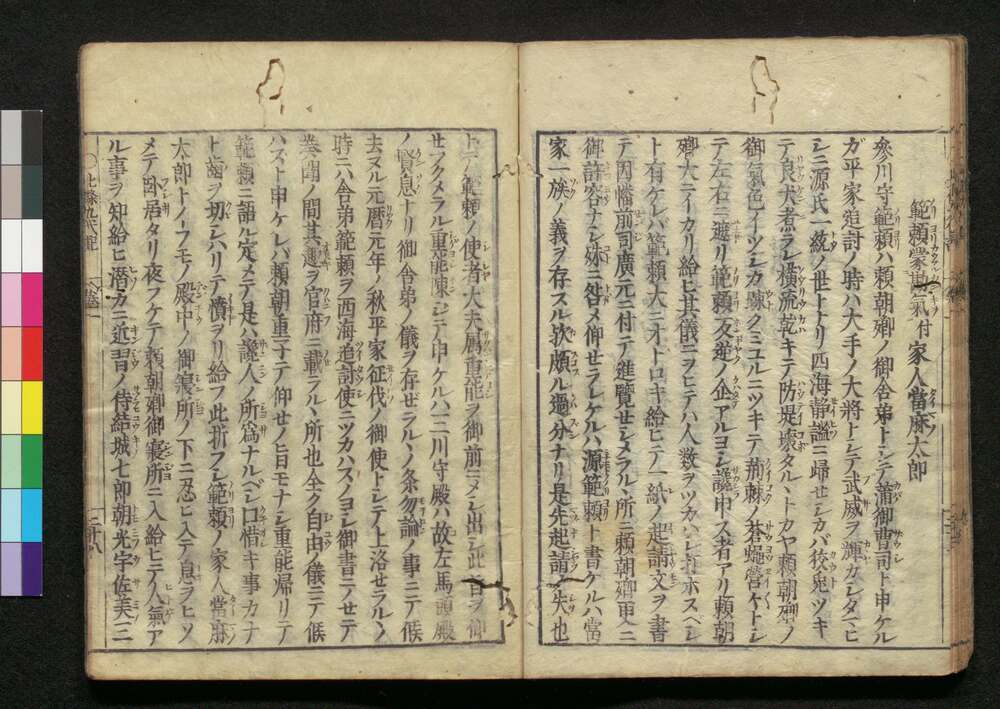 範頼蒙勘氣付家人當麻太郎
參川守範頼ハ頼朝卿ノ御舎弟トシテ蒲御曹司ト申ケル
ガ平家追討ノ時ハ大手ノ大將トシテ武威ヲ輝カシタマヒ
シニ源氏一統ノ世トナリ四海静謐ニ歸セシカバ狡兎ツキ
テ良犬煮ラレ横流乾キテ防堤壞タルヽトカヤ頼朝卿ノ
御氣色イツシカ疎クミユルニツキテ荊棘ノ蒼蠅營々トシ
テ左右ニ遮リ範頼反逆ノ企アルヨシ讒申ス者アリ頼朝
卿大ニイカリ給ヒ其儀ニヲヒテハ人数ヲツカハシ打ホスヘシ
ト有ケレバ範頼大ニオトロキ給ヒテ一紙ノ起請文ヲ書
テ因幡前司廣元ニ付テ進覽セシメラルヽ所ニ頼朝卿更ニ
御許容ナシ殊ニ咎メ仰セラレケルハ源範頼ト書ケルハ當
家一族ノ義ヲ存スル歟頗ル過分ナリ是先起請ノ失也
トテ範頼ノ使者大夫属重能ヲ御前ニメシ出シ此旨ヲ仰
セフクメラル重能陳シテ申ケルハ三川守殿ハ故左馬頭殿
ノ賢息ナリ御舎弟ノ儀ヲ存ゼラルヽノ条勿論ノ事ニテ候
去ヌル元暦元年ノ秋平家征伐ノ御使トシテ上洛セラルヽノ
時ニハ舎弟範頼ヲ西海追討使ニツカハスノヨシ御書ニテセテ
奏聞ノ間其趣ヲ官府ニ載ラルヽ所也全ク自由ノ儀ニテ候
ハズト申ケレバ頼朝重子テ仰セノ旨モナシ重能帰リテ
範頼ニ語ル定メテ是ハ讒人ノ所爲ナルベシ口惜キ事カナ
ト歯ヲ切シハリテ憤ヲリ給フ此折フシ範頼ノ家人當麻
太郎トイフモノ殿中ノ御寝所ノ下ニ忍ヒ入テ息ヲヒソ
メテ囚居タリ夜フケテ頼朝卿御寝所ニ入給ヒテ人氣ア
ル事ヲ知給ヒ潜カニ近習ノ侍結城七郎朝光宇佐美三